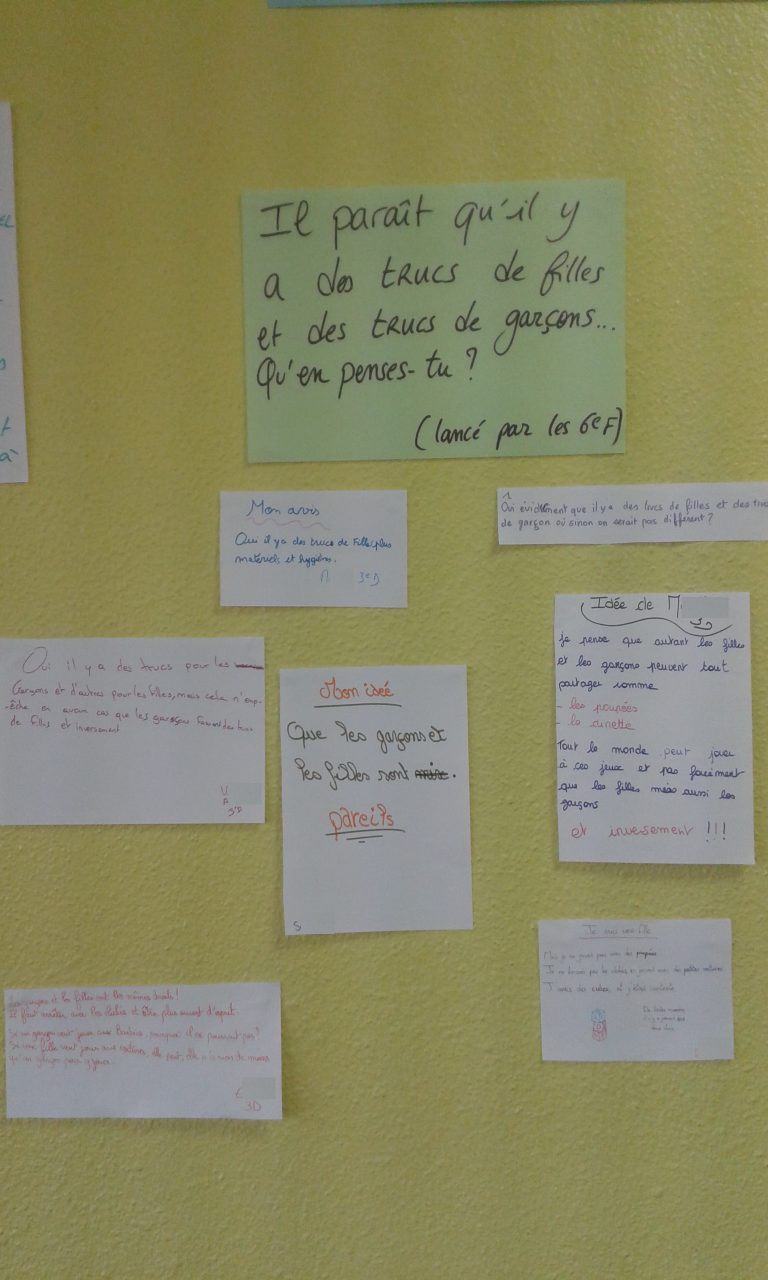 Il paraît qu'il y
a des trucs de filles
et des trucs de garçons...
Qu'en penses-tu ?
(lancé par les 6e F)
Mon avis
Oui il y a des trucs de filles, plus
matériels et hygiènes.
3e D
Oui évidement que il y a des trucs de filles et des trucs
de garçon où sinon on serait pas différent ?
Idée de M
3D
je pense que autant les filles
et les garçons peuvent tout
partager comme
- les poupées
- la dinette
Tout le monde peut jouer
à ces jeux et pas forcément
que les filles mais aussi les
garçons
et inversement !!!
Oui il y a des trucs pour les
Garçons et d'autres pour les filles, mais cela n'emp-
-êche en aucun cas que les garçons fassent des trucs
de filles et inversement
3eD
Mon ideé
Que les garçons et
les filles sont
pareils
S
Les garçons et les filles ont les mêmes droits !
Il faut arrêter avec les clichés et être plus ouvert d'esprit.
Si un garçon veut jouer aux barbies, pourquoi il ne pourrait pas ?
Si une fille veut jouer aux voitures, elle peut, elle n'a rien de moins
qu'un garçon pour y jouer.
E
3D
Je suis une fille
Mais je ne jouais pas avec des poupées
Je ne les clichés en jouant avec des petites voitures
J'avais des cubes, et j'étais contente